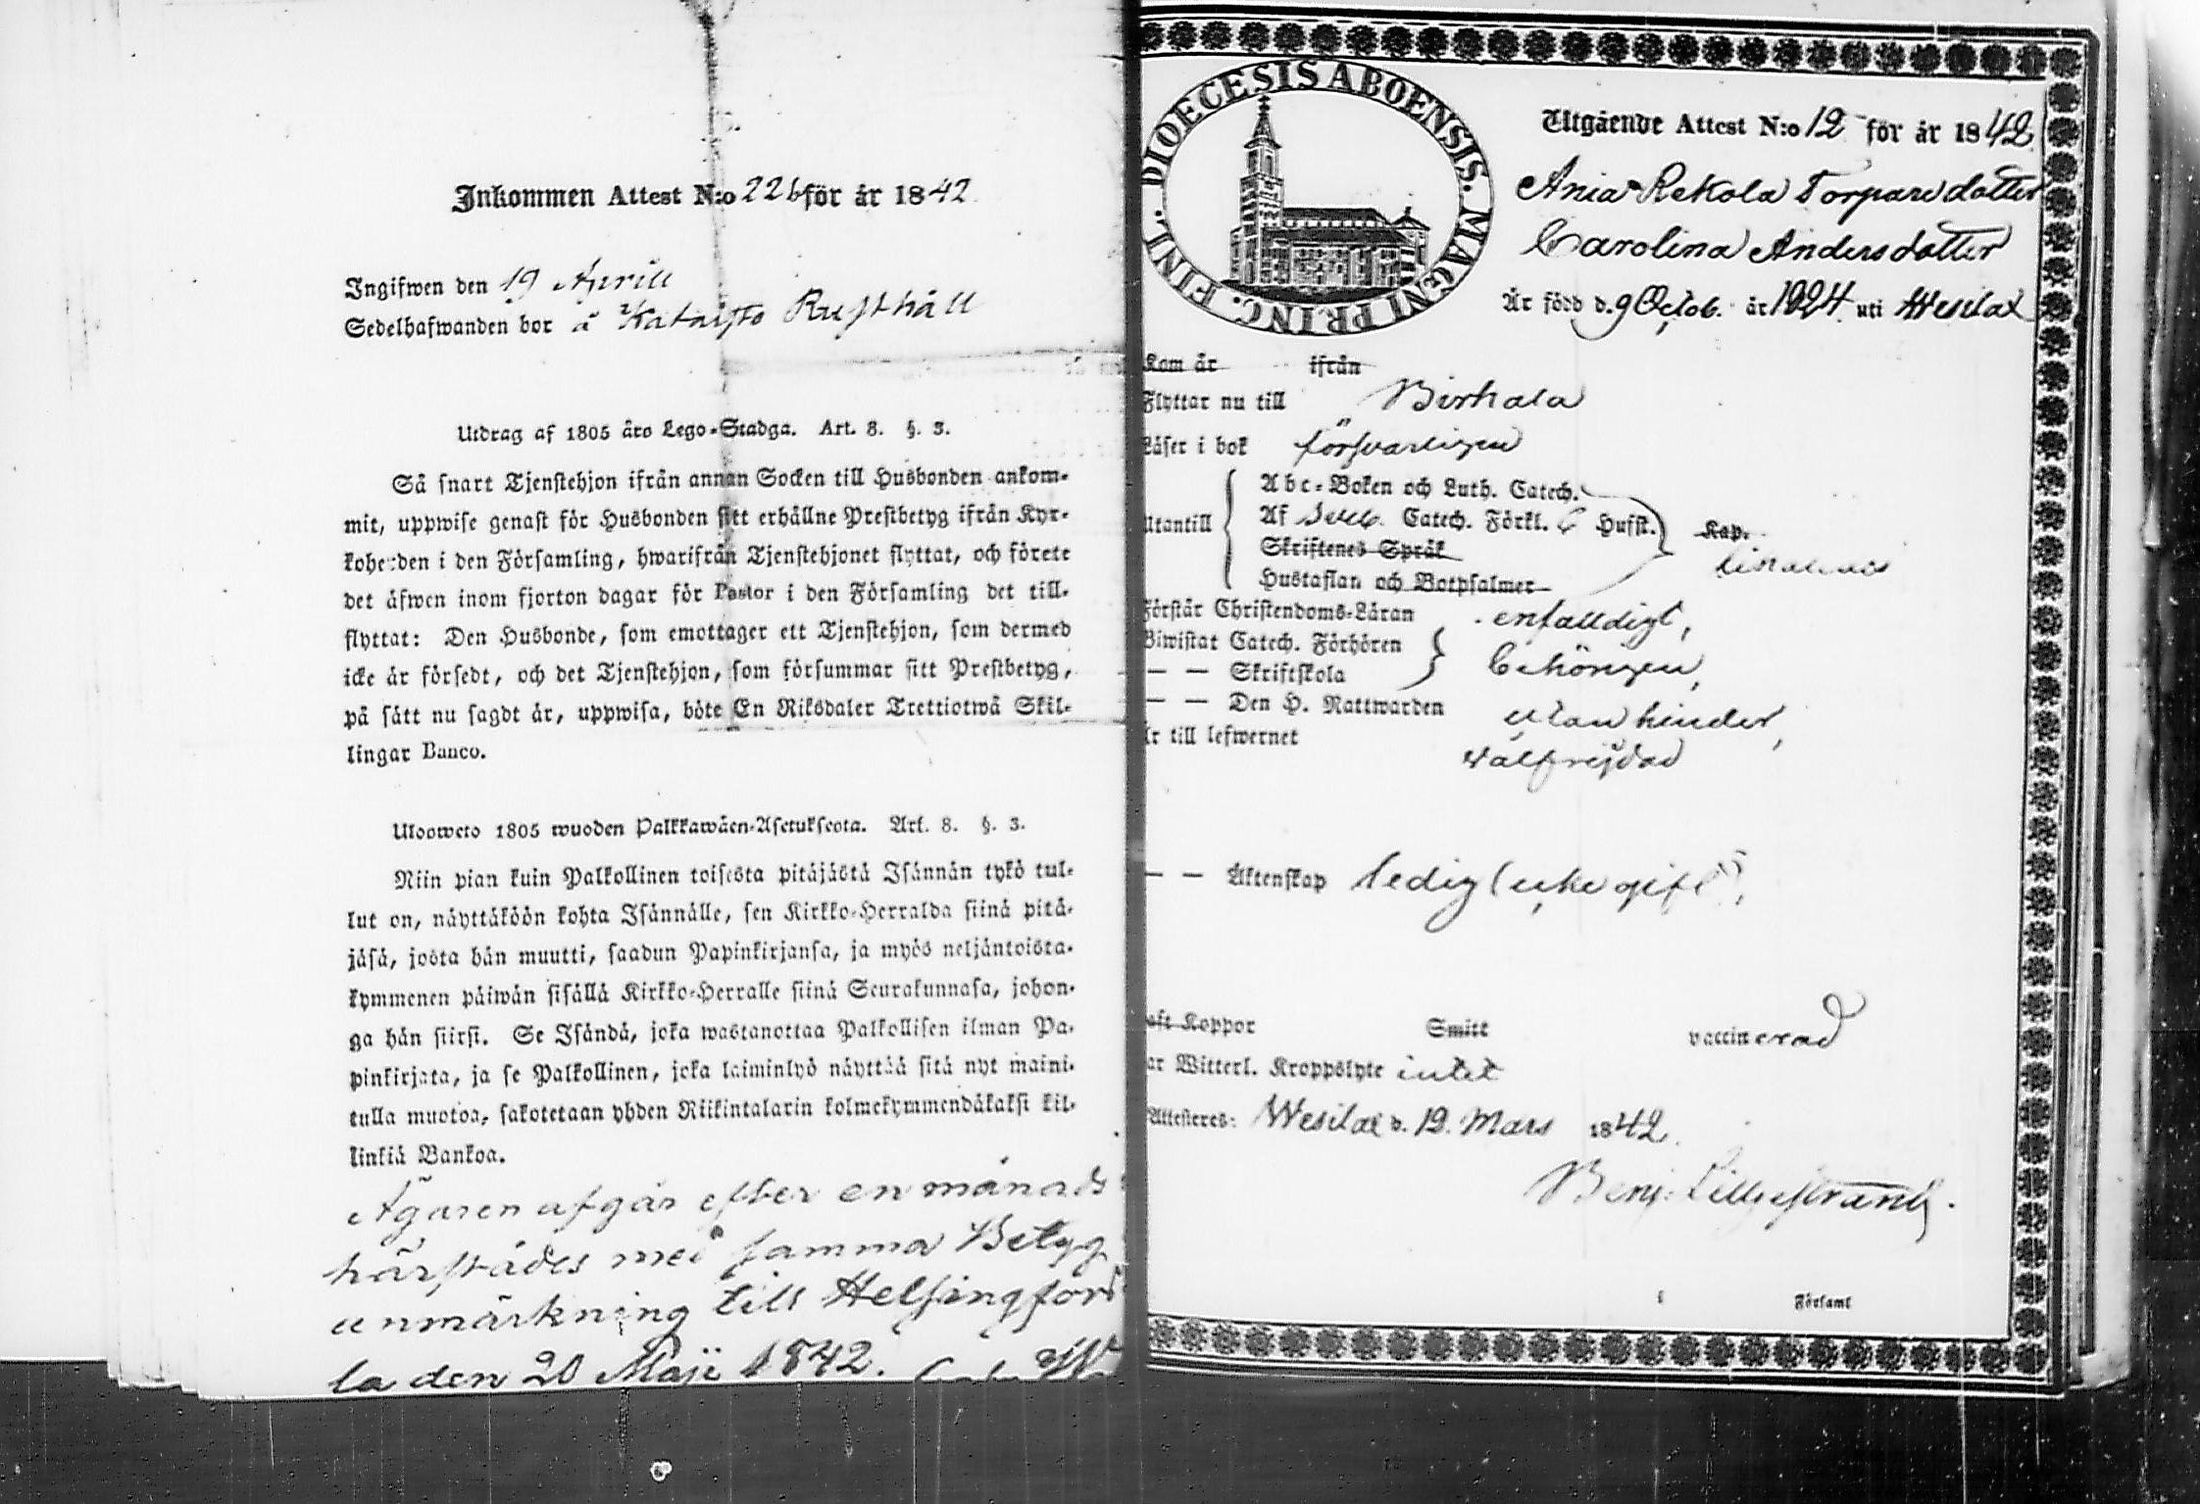 Inkommen Attest N:o 226 för år 1842
Ingifwen den 19 Aprill
Sedelhafwanden bor å Katajisto Rusthåll
Utdrag af 1805 års Lego-Stadga. Art. 8. §. 3.
Så snart Tjenstehjon ifrån annan Socken till Husbonden ankom-
mit, uppwise genast för Husbonden sitt erhållne Prestbetyg ifrån Kyr-
koherden i den Församling, hwarifrån Tjenstehjonet flyttat, och förete
det äfwen inom fjorton dagar för Pastor i den Församling det till-
flyttat: Den Husbonde, som emottager ett Tjenstehjon, som dermed
icke är försedt, och det Tjenstehjon, som försummar sitt Prestbetyg,
på sätt nu sagdt är, uppwisa, böte En Riksdaler Trettiotwå Skil-
lingar Banco.
Ulosweto 1805 wuoden Palkkawäen-Asetuksesta. Art. 8. §. 3.
Niin pian kuin Palkollinen toisesta pitäjästä Isännän tykö tul-
lut on, näyttäköön kohta Isännälle, sen Kirkko-Herralda siinä pitä-
jäsä, josta hän muutti, saadun Papinkirjansa, ja myös neljäntoista-
kymmenen päiwän sisällä Kirkko-Herralle siinä Seurakunnasa, johon-
ga hän siirsi. Se Isändä, joka wastanottaa Palkollisen ilman Pa-
pinkirjata, ja se Palkollinen, joka laiminlyö näyttää sitä nyt maini-
tulla muotoa, sakotetaan yhden Riikintalarin kolmekymmendäkaksi kil-
linkiä Bankoa.
Ägaren afgår efter en månads
härstädes med samma Betyg
anmärkning till Helsingfors
la den 20 Maji 1842.
DIOECESIS ABOENSIS. MAGNI PRINC. FINL.
Utgående Attest N:o 12 för år 1842
Ania Rekola Torpare dotter
Carolina Andersdotter
Är född d. 9 Octob. år 1824 uti Wesilax
Kom år ifrån
Flyttar nu till Birkala
Läser i bok försvarligen
Utantill
Abc-Boken och Luth. Catech.
Af Sveb. Catech. Förkl. 6 Hufst. Kap.
Skriftenes Språk
Hustaflan och Botpsalmer
Förstår Christendoms-Läran enfalldigt,
Biwistat Catech. Förhören
— — Skriftskola behörigen,
— — Den H. Nattwarden utan hinder,
Är till lefwernet wälfrejdad
— — Äktenskap ledig (icke gift),
haft Koppor Smitt vaccinerad
har Witterl. Kroppslyte intet
Attesteres: Wesilax d. 19 Mars 1842.
Benj. Lilljestrand.
i Församl